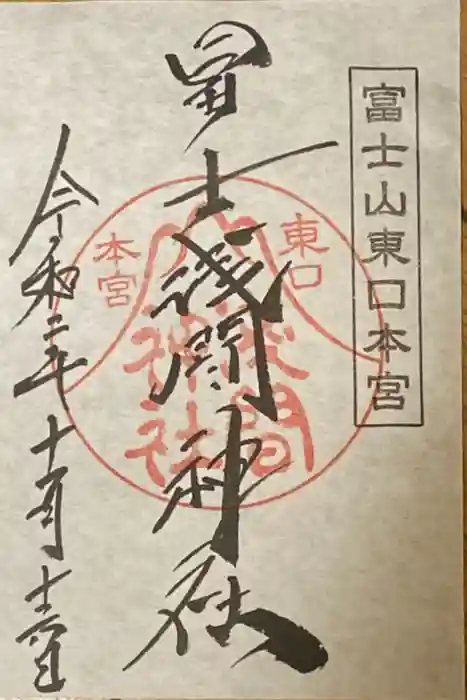 富士山東口本宮
冨士浅間神社
東口
本宮
浅間
神社
令和二年十一月